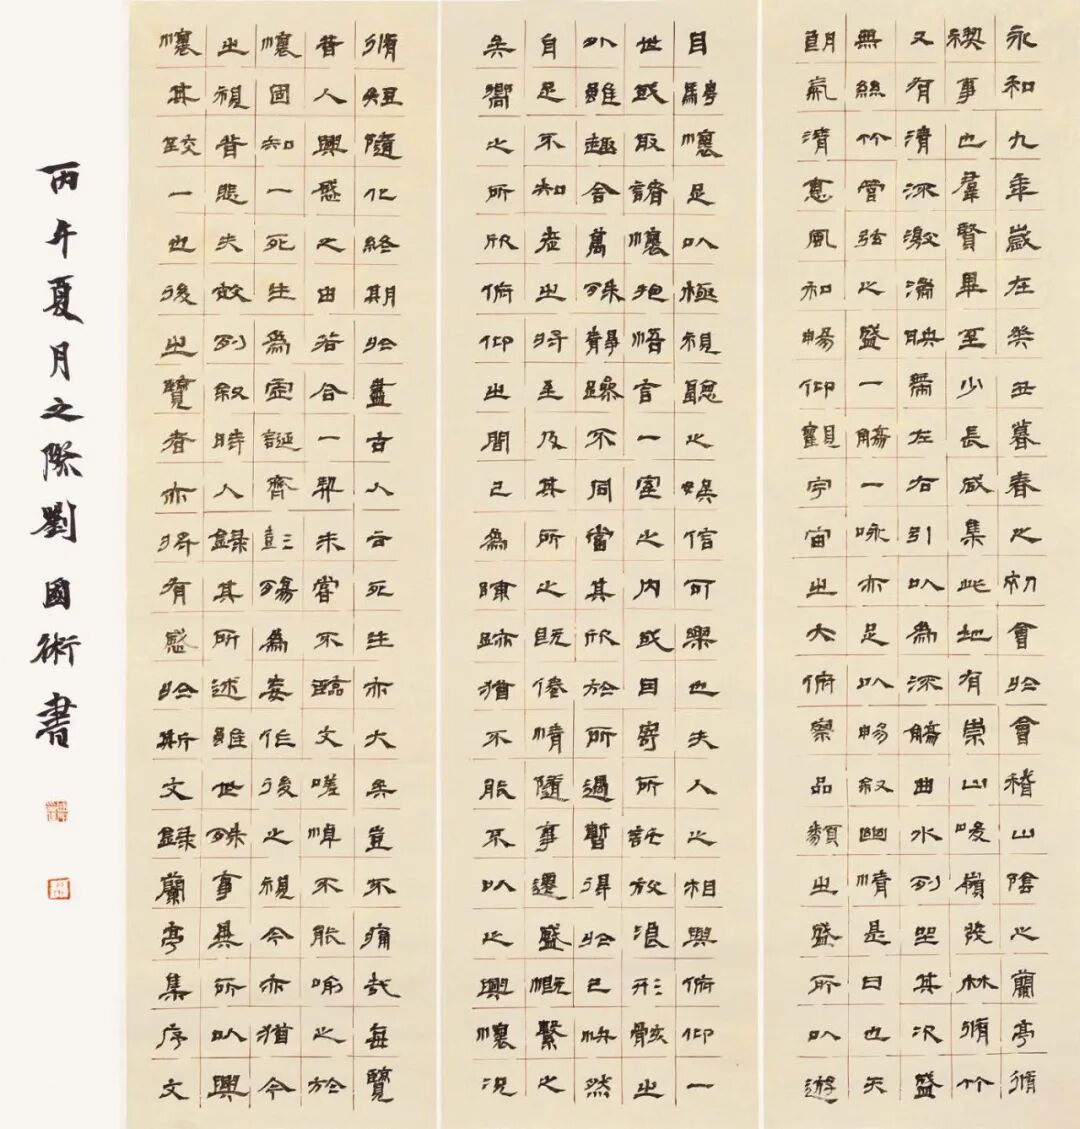 永和九年歲在癸丑暮春之初會於會稽山陰之蘭亭脩
禊事也羣賢畢至少長咸集此地有崇山峻嶺茂林脩竹
又有清流激湍映帶左右引以為流觴曲水列坐其次盛
無絲竹管弦之盛一觴一咏亦足以暢叙幽情是日也天
朗氣清惠風和暢仰觀宇宙之大俯察品類之盛所以遊
目騁懷足以極視聽之娛信可樂也夫人之相與俯仰一
世或取諸懷抱悟言一室之內或因寄所託放浪形骸之
外雖趣舍萬殊靜躁不同當其欣於所遇暫得於己怏然
自足不知老之將至及其所之既倦情隨事遷感慨繫之
矣嚮之所欣俯仰之間已為陳跡猶不能不以之興懷況
脩短隨化終期於盡古人云死生亦大矣豈不痛哉每覽
昔人興感之由若合一契未嘗不臨文嗟悼不能喻之於
懷固知一死生為虛誕齊彭殤為妄作後之視今亦猶今
之視昔悲夫故列叙時人錄其所述雖世殊事異所以興
懷其致一也後之覽者亦將有感於斯文錄蘭亭集序文
丙午夏月之際劉國術書